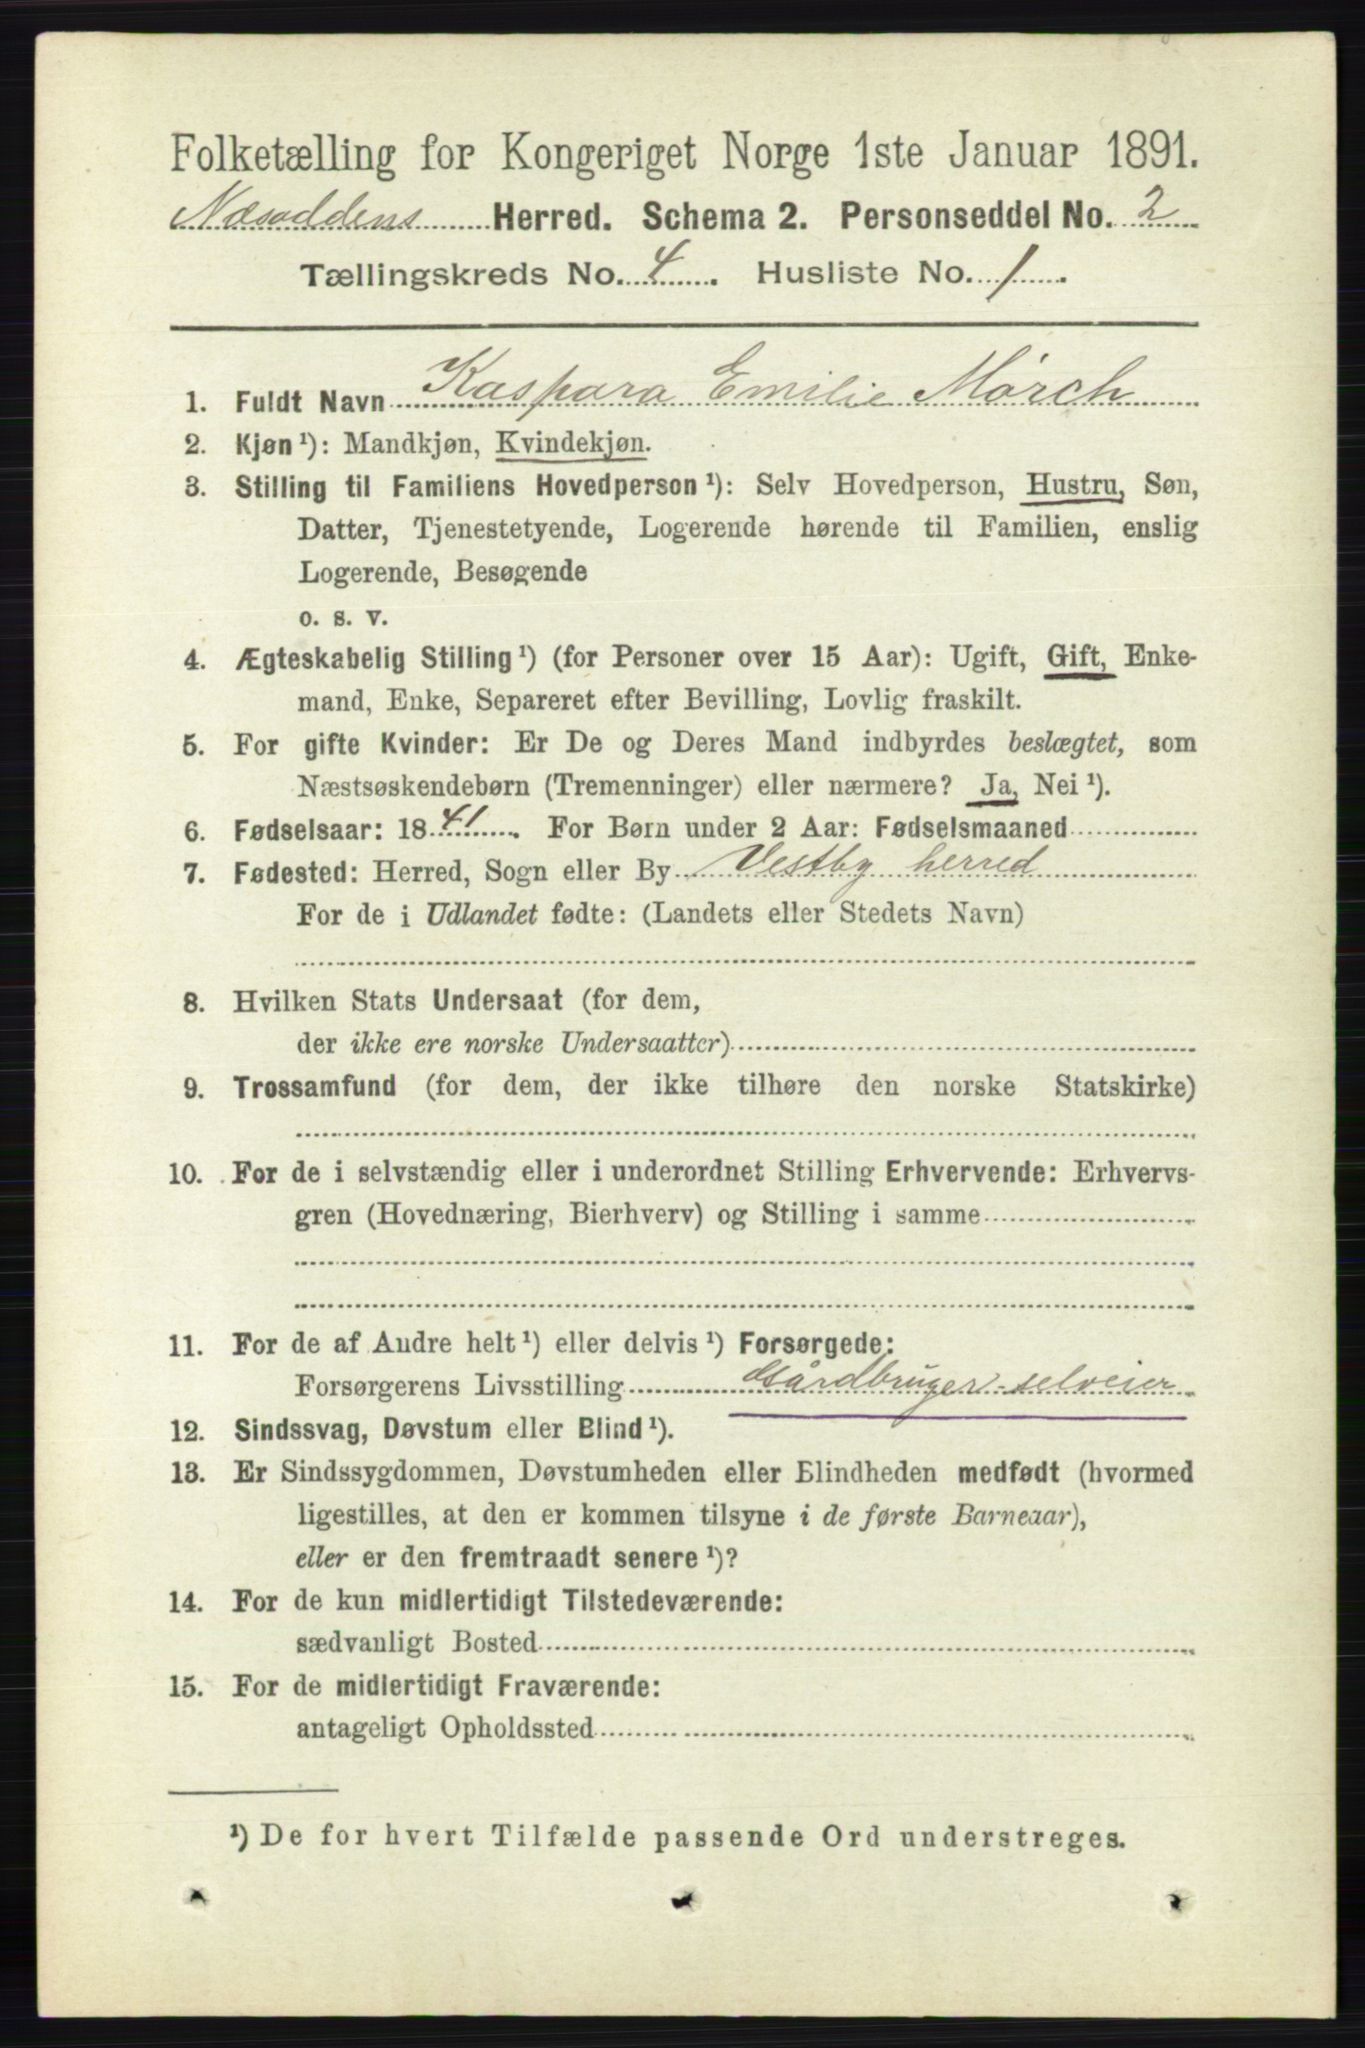 Folketælling for Kongeriget Norge 1ste Januar 1891.
Næsoddens Herred. Schema 2. Personseddel No. 2
Tællingskreds No. 4. Husliste No. 1.
1. Fuldt Navn Kaspara Emilie Mørch
2. Kjøn ¹): Mandkjøn, Kvindekjøn.
3. Stilling til Familiens Hovedperson ¹): Selv Hovedperson, Hustru, Søn,
Datter, Tjenestetyende, Logerende hørende til Familien, enslig
Logerende, Besøgende
o. s. v.
4. Ægteskabelig Stilling ¹) (for Personer over 15 Aar): Ugift, Gift, Enke-
mand, Enke, Separeret efter Bevilling, Lovlig fraskilt.
5. For gifte Kvinder: Er De og Deres Mand indbyrdes beslægtet, som
Næstsøskendebørn (Tremenninger) eller nærmere? Ja, Nei ¹).
6. Fødselsaar: 1841. For Børn under 2 Aar: Fødselsmaaned
7. Fødested: Herred, Sogn eller By Vestby herred
For de i Udlandet fødte: (Landets eller Stedets Navn)
8. Hvilken Stats Undersaat (for dem,
der ikke ere norske Undersaatter)
9. Trossamfund (for dem, der ikke tilhøre den norske Statskirke)
10. For de i selvstændig eller i underordnet Stilling Erhvervende: Erhvervs-
gren (Hovednæring, Bierhverv) og Stilling i samme
11. For de af Andre helt ¹) eller delvis ¹) Forsørgede:
Forsørgerens Livsstilling Gårdbruger-selveier
12. Sindssvag, Døvstum eller Blind ¹).
13. Er Sindssygdommen, Døvstumheden eller Blindheden medfødt (hvormed
ligestilles, at den er kommen tilsyne i de første Barneaar),
eller er den fremtraadt senere ¹)?
14. For de kun midlertidigt Tilstedeværende:
sædvanligt Bosted
15. For de midlertidigt Fraværende:
antageligt Opholdssted
¹) De for hvert Tilfælde passende Ord understreges.